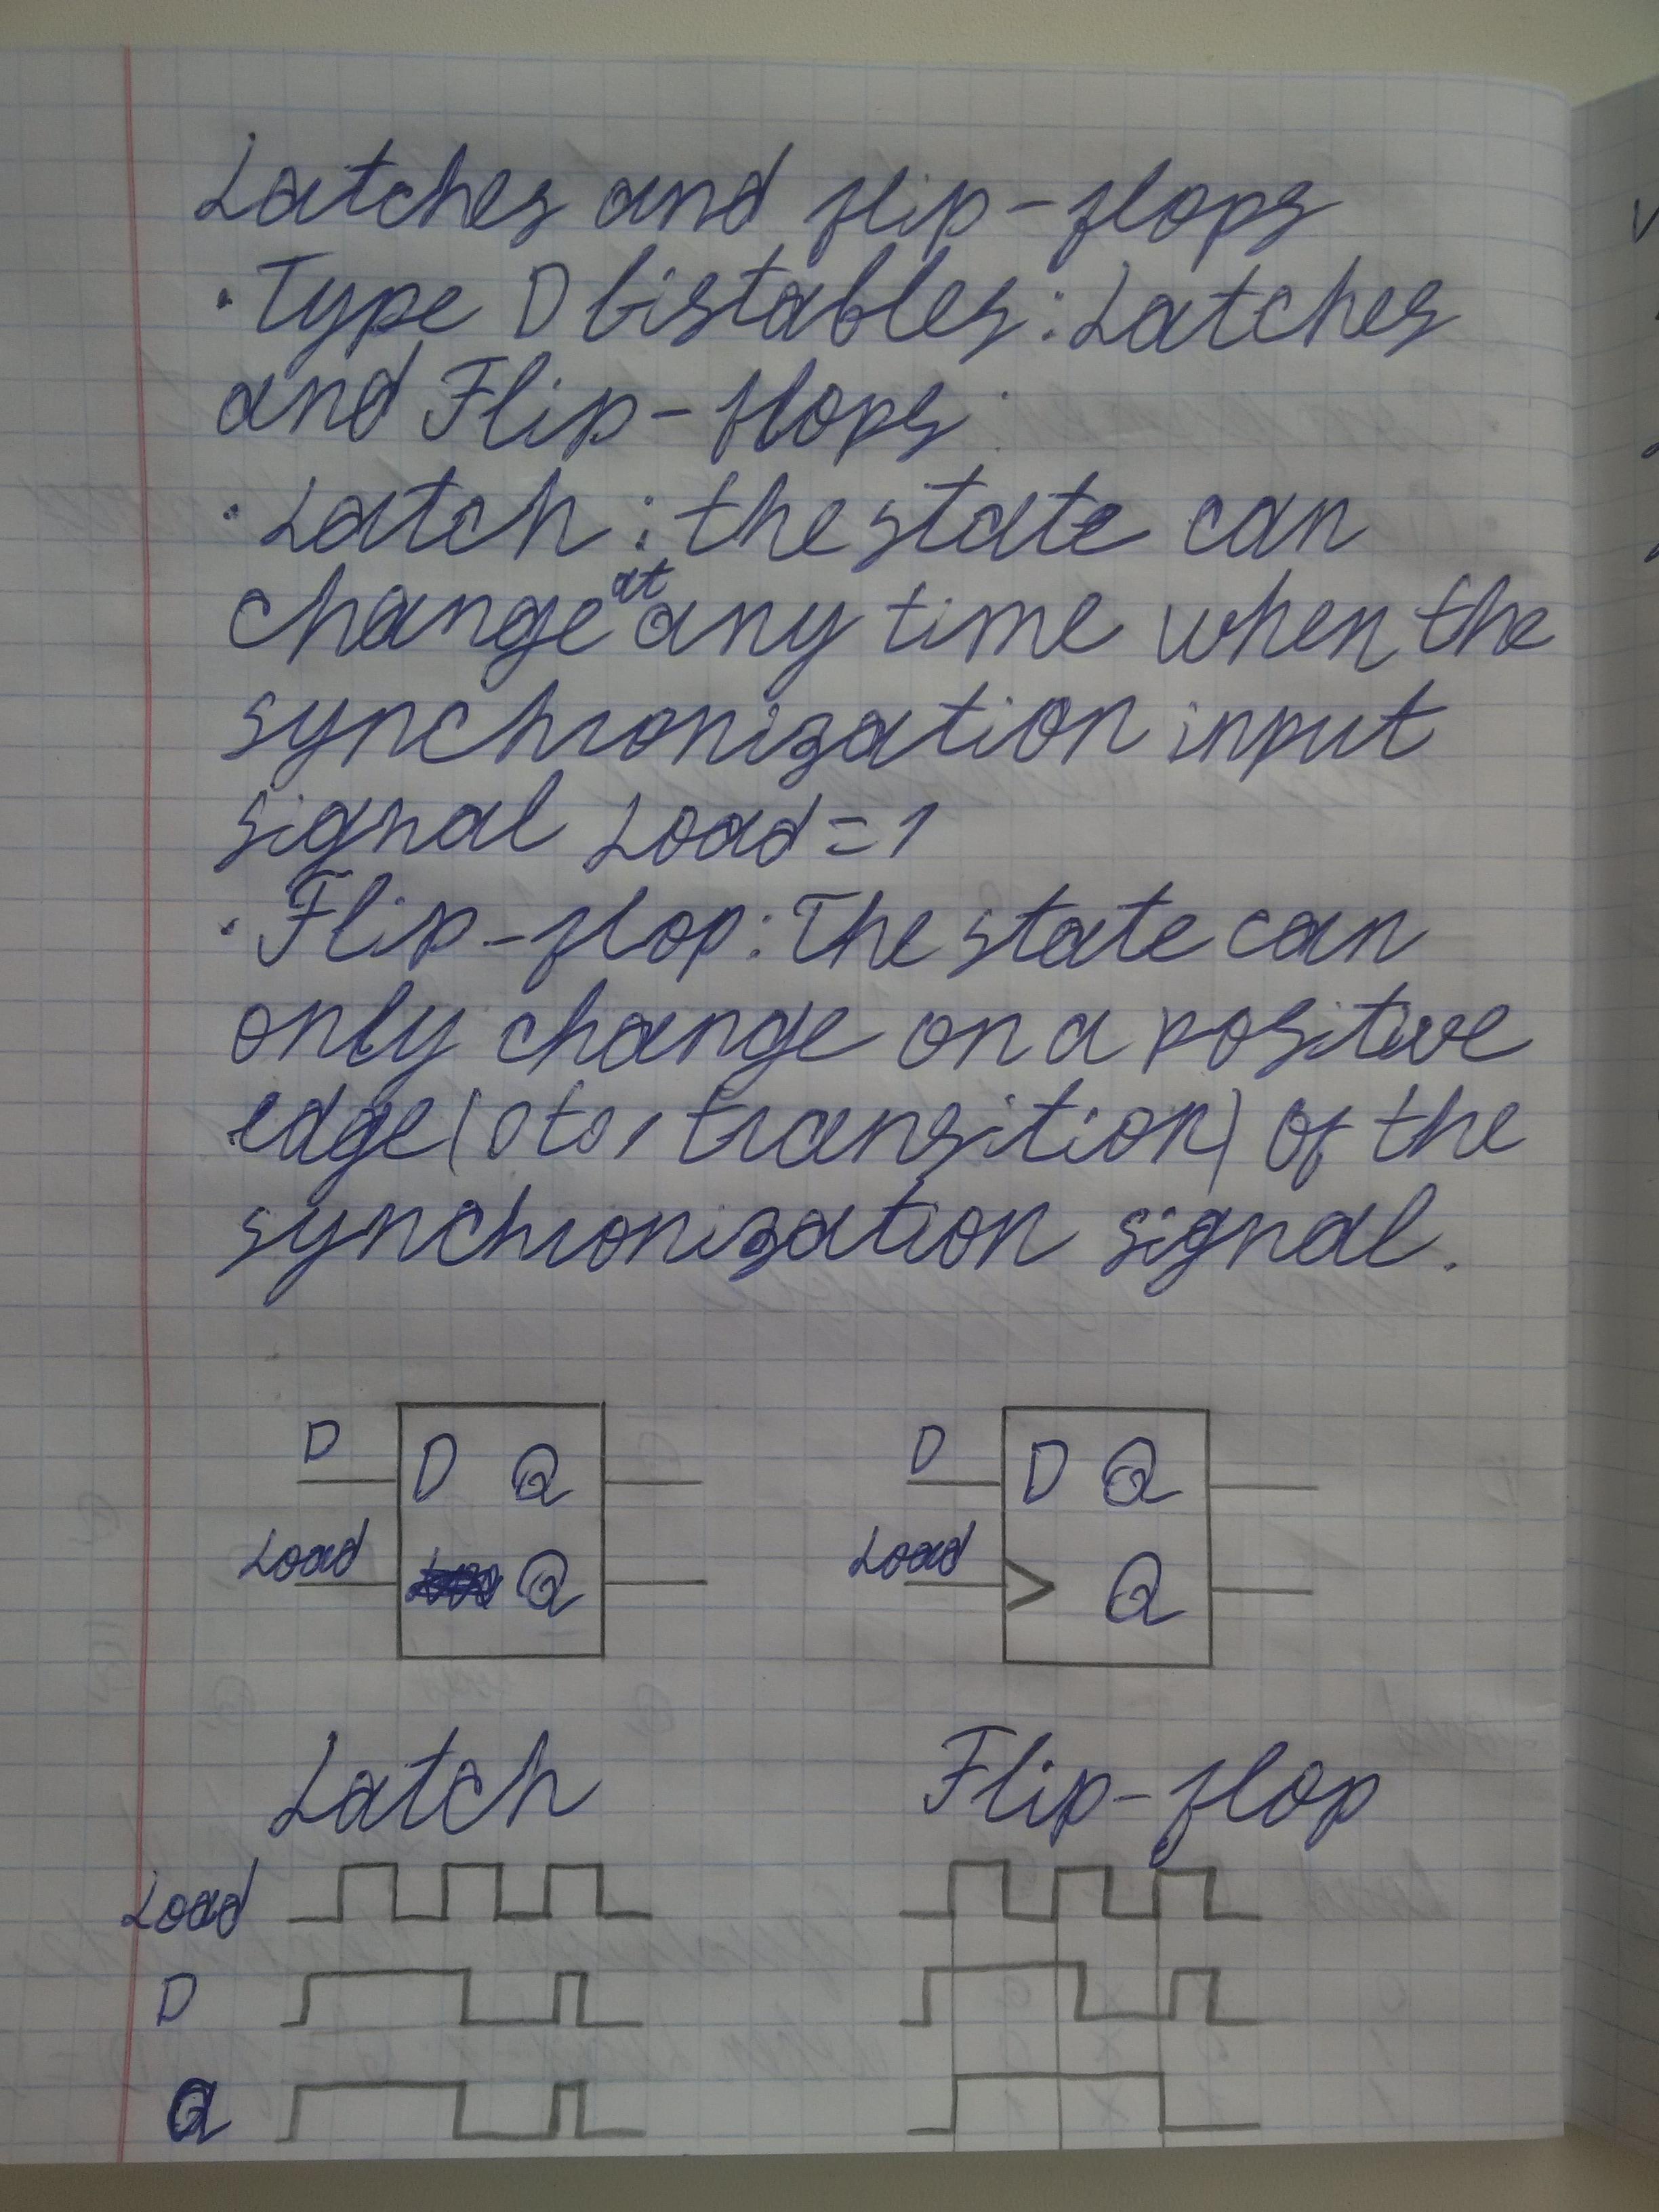 Latches and flip-flops
· Type D bistables: Latches
and Flip-flops
· Latch: the state can
change at any time when the
synchronization input
signal Load=1
· Flip-flop: The state can
only change on a positive
edge (0 to 1 transition) of the
synchronization signal.
D D Q D D Q
Load Q Load > Q
Latch Flip-flop
Load
D
Q